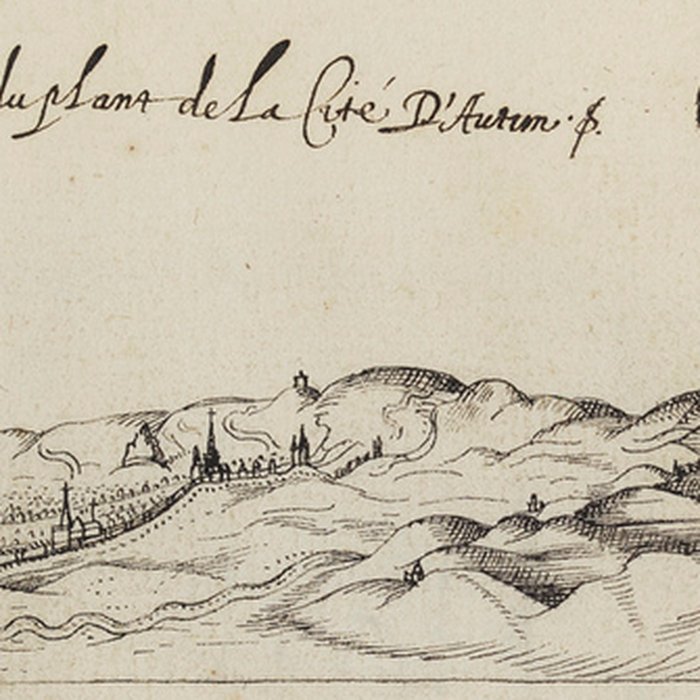 du plant de La Cité D'Autun